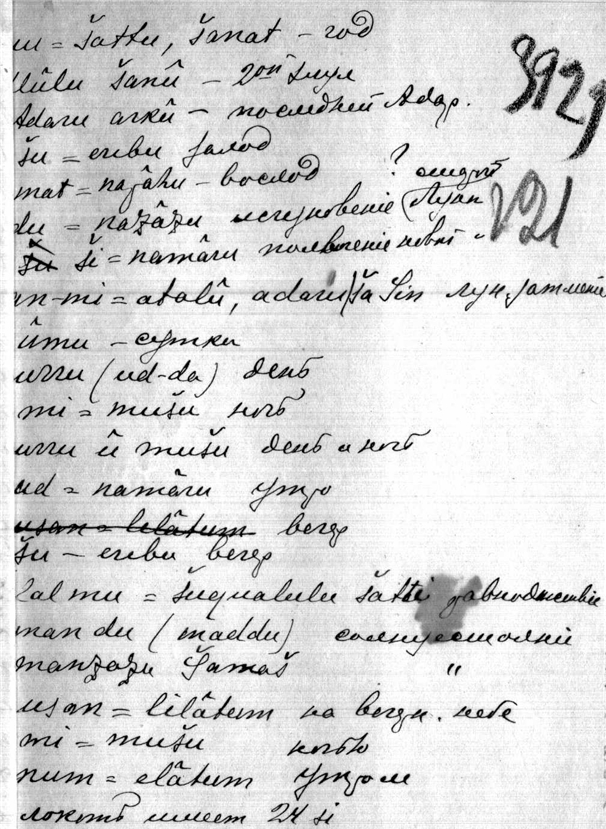 mu = šattu, šanat – год
Ulûlu šanû – 2ой Элул
Adaru arkû – последний Адар.
3929
šu = eribu заход
mat = napâhu – восход ?
du = nazâzu исчезновение Луны
221
ši = namâru появление новой "
an-mi = atalû, adaru ša Sin лун. затмение
ûmu – сутки
urru (ud-da) день
mi = mušu ночь
urru û mušu день и ночь
ud = namâru утро
usan = lilâtum вечер
šu – eribu вечер
lal mu = šuqualulu šatti равноденствие
man du (maddu) солнцестояние
manzazu Šamaš "
usan = lilâtum на вечерн. небе
mi = mušu ночью
num = elâtum утром
локоть имеет 24 si